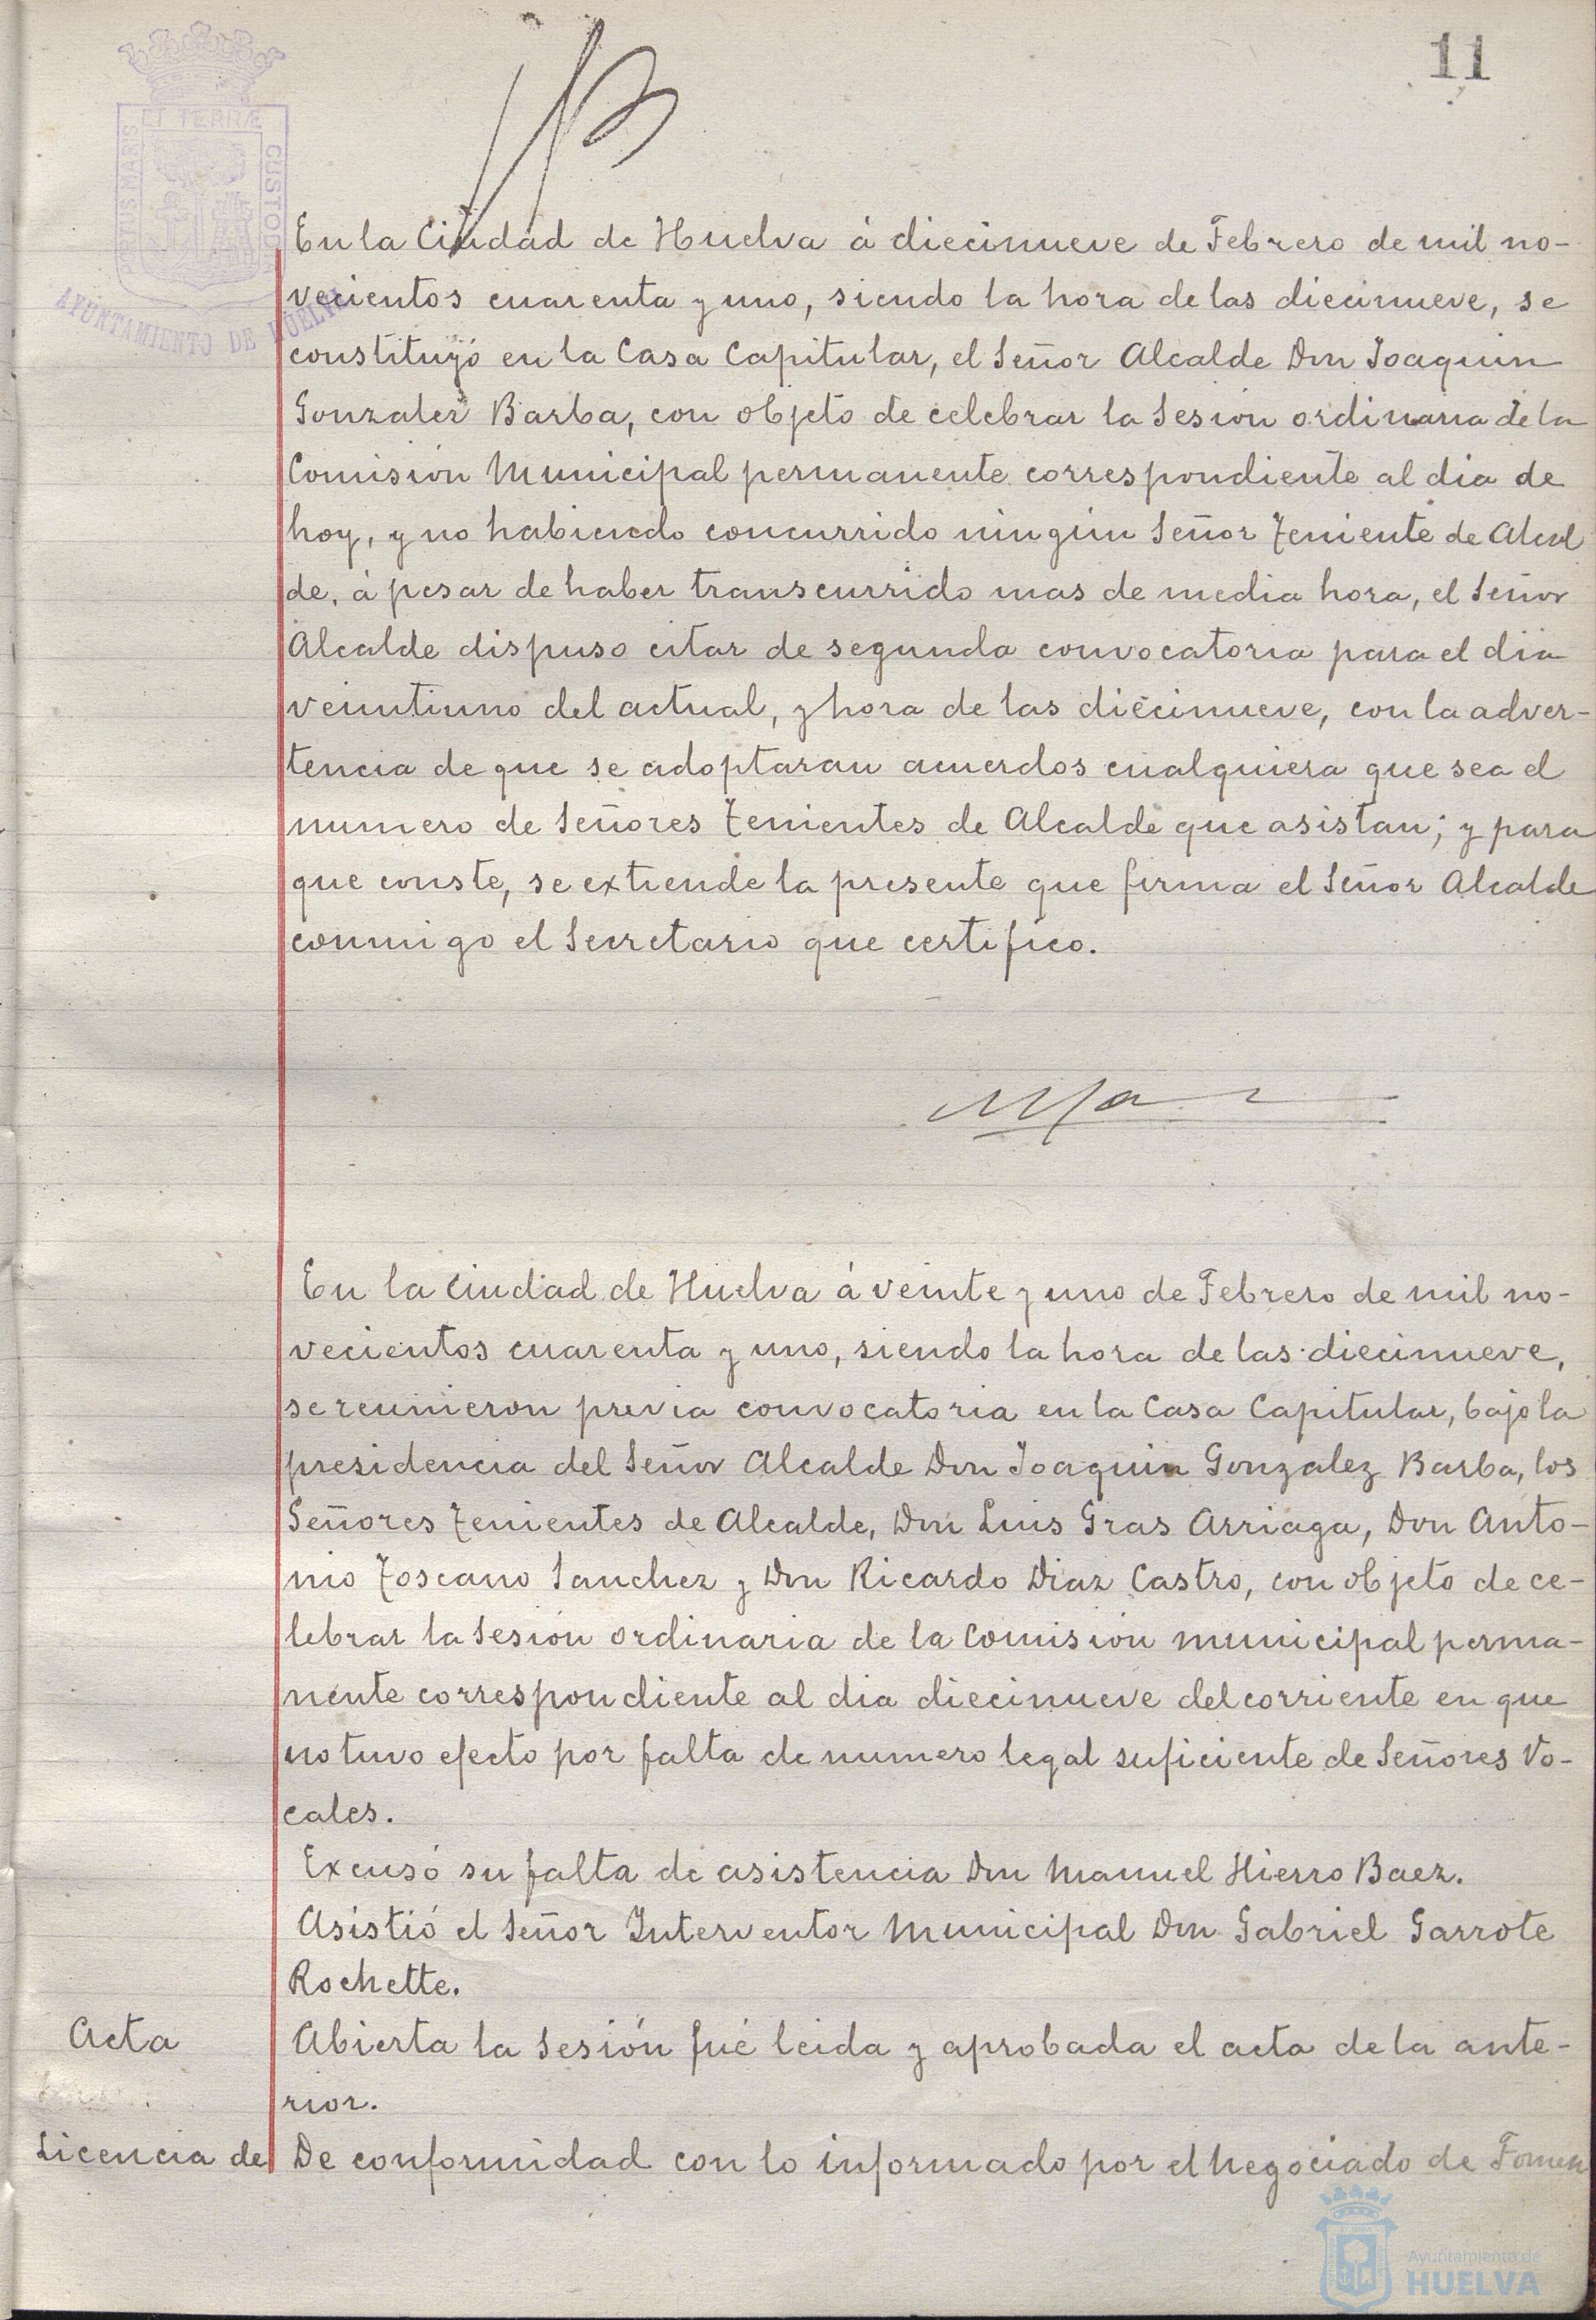 11
ET TERRÆ
PORTUS MARIS
CUSTODIA
AYUNTAMIENTO DE HUELVA
En la Ciudad de Huelva á diecinueve de Febrero de mil no-
vecientos cuarenta y uno, siendo la hora de las diecinueve, se
constituyó en la Casa Capitular, el Señor Alcalde Don Joaquin
Gonzalez Barba, con objeto de celebrar la Sesión ordinaria de la
Comisión Municipal permanente correspondiente al dia de
hoy, y no habiendo concurrido ningún Señor Teniente de Alcal
de, á pesar de haber transcurrido mas de media hora, el Señor
Alcalde dispuso citar de segunda convocatoria para el dia
veintiuno del actual, y hora de las diecinueve, con la adver-
tencia de que se adoptaran acuerdos cualquiera que sea el
numero de Señores Tenientes de Alcalde que asistan; y para
que conste, se extiende la presente que firma el Señor Alcalde
conmigo el Secretario que certifico.
En la Ciudad de Huelva á veinte y uno de Febrero de mil no-
vecientos cuarenta y uno, siendo la hora de las diecinueve,
se reunieron previa convocatoria en la Casa Capitular, bajo la
presidencia del Señor Alcalde Don Joaquin Gonzalez Barba, los
Señores Tenientes de Alcalde, Don Luis Gras Arriaga, Don Anto-
nio Toscano Sanchez y Don Ricardo Diaz Castro, con objeto de ce-
lebrar la Sesión ordinaria de la Comisión municipal perma-
nente correspondiente al dia diecinueve del corriente en que
no tuvo efecto por falta de numero legal suficiente de Señores Vo-
cales.
Excusó su falta de asistencia Don Manuel Hierro Baez.
Asistió el Señor Interventor Municipal Don Gabriel Garrote
Rochette.
Acta
Abierta la Sesión fué leida y aprobada el acta de la ante-
rior.
Licencia de
De conformidad con lo informado por el Negociado de Fomen
Ayuntamiento de
HUELVA